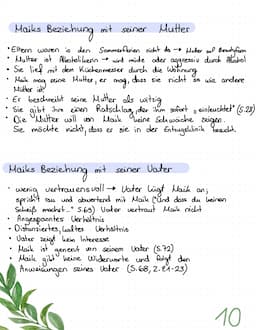 Maiks Beziehung mit seiner Mutter
• Eltern waren in den Sommerferien nicht da → Mutter auf Beautyfarm
• Mutter ist Alkoholikerin → wird müde oder aggressiv durch Alkohol
• Sie lief mit dem Küchenmesser durch die Wohnung
• Maik mag seine Mutter, er mag, dass sie nicht so wie andere
Mütter ist
• Er beschreibt seine Mutter als witzig
• Sie gibt ihm einen Ratschlag, der ihm sofort „einleuchtet" (S.28)
• Die Mutter will von Maik keine Schwäche zeigen.
Sie möchte nicht, dass er sie in der Entzugsklinik besucht.
Maiks Beziehung mit seiner Vater
• wenig vertrauensvoll → Vater lügt Maik an;
spricht rau und abwertend mit Maik („und dass du keinen
Scheiß machst..." S.69) Vater vertraut Maik nicht
• Angespanntes Verhältnis
• Distanziertes, kaltes Verhältnis
• Vater zeigt kein Interesse
• Maik ist genervt von seinem Vater (S.72)
• Maik gibt keine Widerworte und folgt den
Anweisungen seines Vaters (S.68, Z.21-23)
10